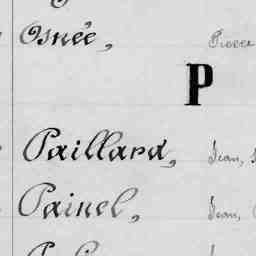 Osnée, Pierre
P
Paillard, Jean,
Painel, Jean,